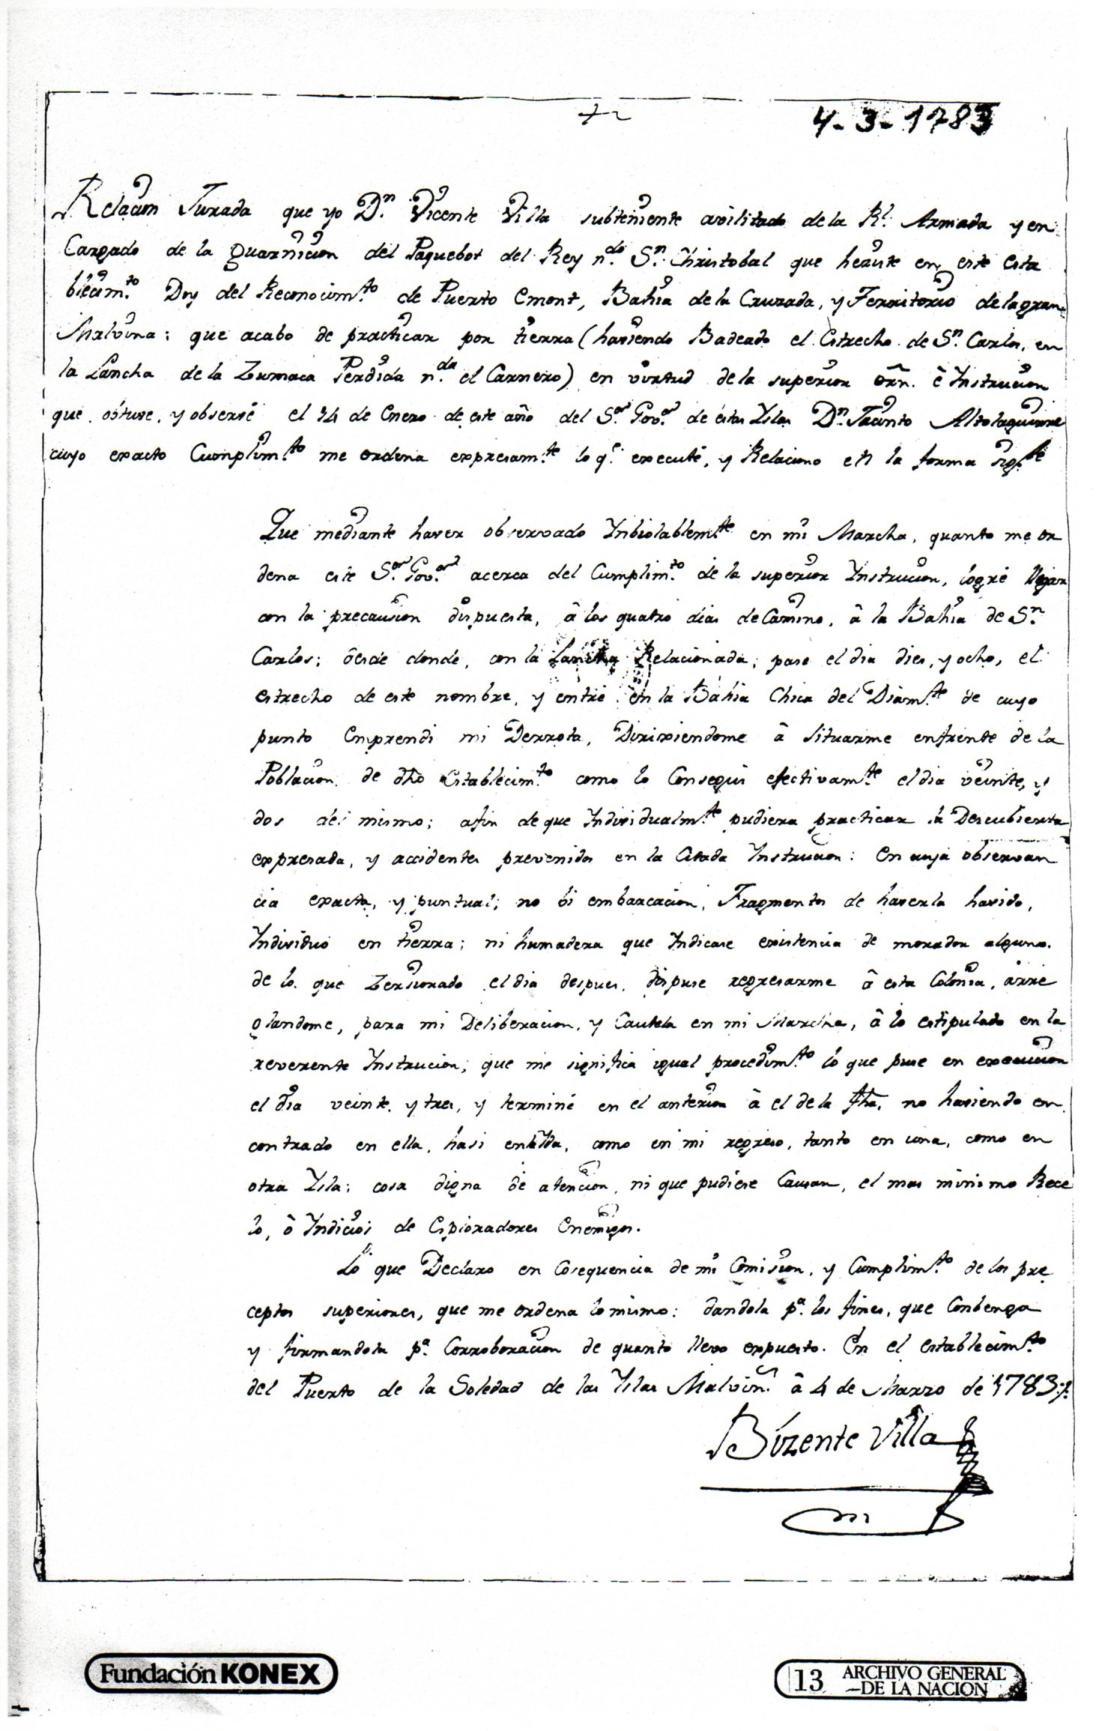 4-3-1783
Relacion Jurada que yo Dn. Vicente Villa subteniente avilitado de la Rl. Armada y en
Cargado de la guarnicion del Paquebot del Rey ndo. Sn. Christobal que heaste en este esta
blecimto. Doy del Reconocimto. de Puerto Emont, Bahia de la Cruzada, y Territorio de la gran
Malvina; que acabo de practicar por tierra (haviendo Badeado el Estrecho de Sn. Carlos, en
la Lancha de la Zumaca Perdida nda. el Carnero) en virtud de la superior orn. è Instrucion
que obtuve, y observé el 14 de Enero de este año del Sor. Govor. de estas Yslas Dn. Jacinto Altolaguirre
cuyo exacto Cumplimto. me ordena expresamte. lo qe. executé, y Relaciono en la forma sigte.
Que mediante haver observado Ynbiolablemte. en mi Marcha, quanto me or
dena este Sor. Govor. acerca del Cumplimto. de la superior Ynstrucion, logré llegar
con la precausion dispuesta, â los quatro dias de Camino, â la Bahia de Sn.
Carlos; desde donde, con la Lancha Relacionada; pase el dia dies, y ocho, el
estrecho de este nombre, y entré en la Bahia Chica del Diamte. de cuyo
punto Emprendi mi Derrota, Diririendome â situarme enfrente de la
Poblacion de dho Establecimto. como lo Consegui efectivamte. el dia veinte, y
dos del mismo; afin de que Yndividualmte. pudiera practicar la Descubierta
expresada, y accidentes prevenidos en la Citada Instrucion: En cuya observan
cia exacta, y puntual; no bi embarcacion, Fragmentos de haverla havido,
Yndividuo en tierra; ni humadera que Yndicase existencia de morador alguno.
de lo que Zersiorado el dia despues, dispuse regresarme â esta Colonia, arre
glandome, para mi Deliberacion, y Cautela en mi Marcha, â lo estipulado en la
reverente Ynstrucion; que me significa igual procedimto. lo que puse en execucion
el dia veinte, y tres, y terminé en el anterior â el de la fha, no haviendo en
contrado en ella, hasi en la Yda, como en mi regreso, tanto en una, como en
otra Ysla; cosa digna de atencion, ni que pudiese Causar, el mas minimo Rece
lo, ô Yndicios de Exploradores Enemigos.
Lo que Declaro en Cosequencia de mi Comision, y Cumplimto. de los pre
ceptos superiores, que me ordena lo mismo: dandola pa. los fines, que Conbenga
y firmandola pa. Corroboracion de quanto llevo expuesto. En el establecimto.
del Puerto de la Soledad de las Yslas Malvins. â 4 de Marzo de 1783.
Bizente Villa
Fundación KONEX
13 ARCHIVO GENERAL
DE LA NACION